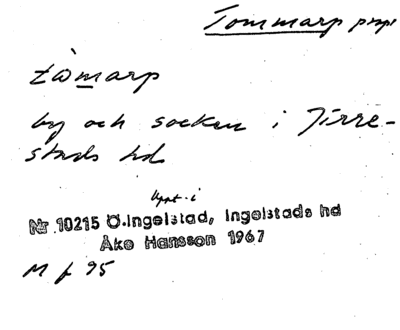 Tommarp
by och socken i Jirre-
stads hd
Uppt. i
Nr 10215 Ö.Ingelstad, Ingelstads hd
Åke Hansson 1967
M f 95